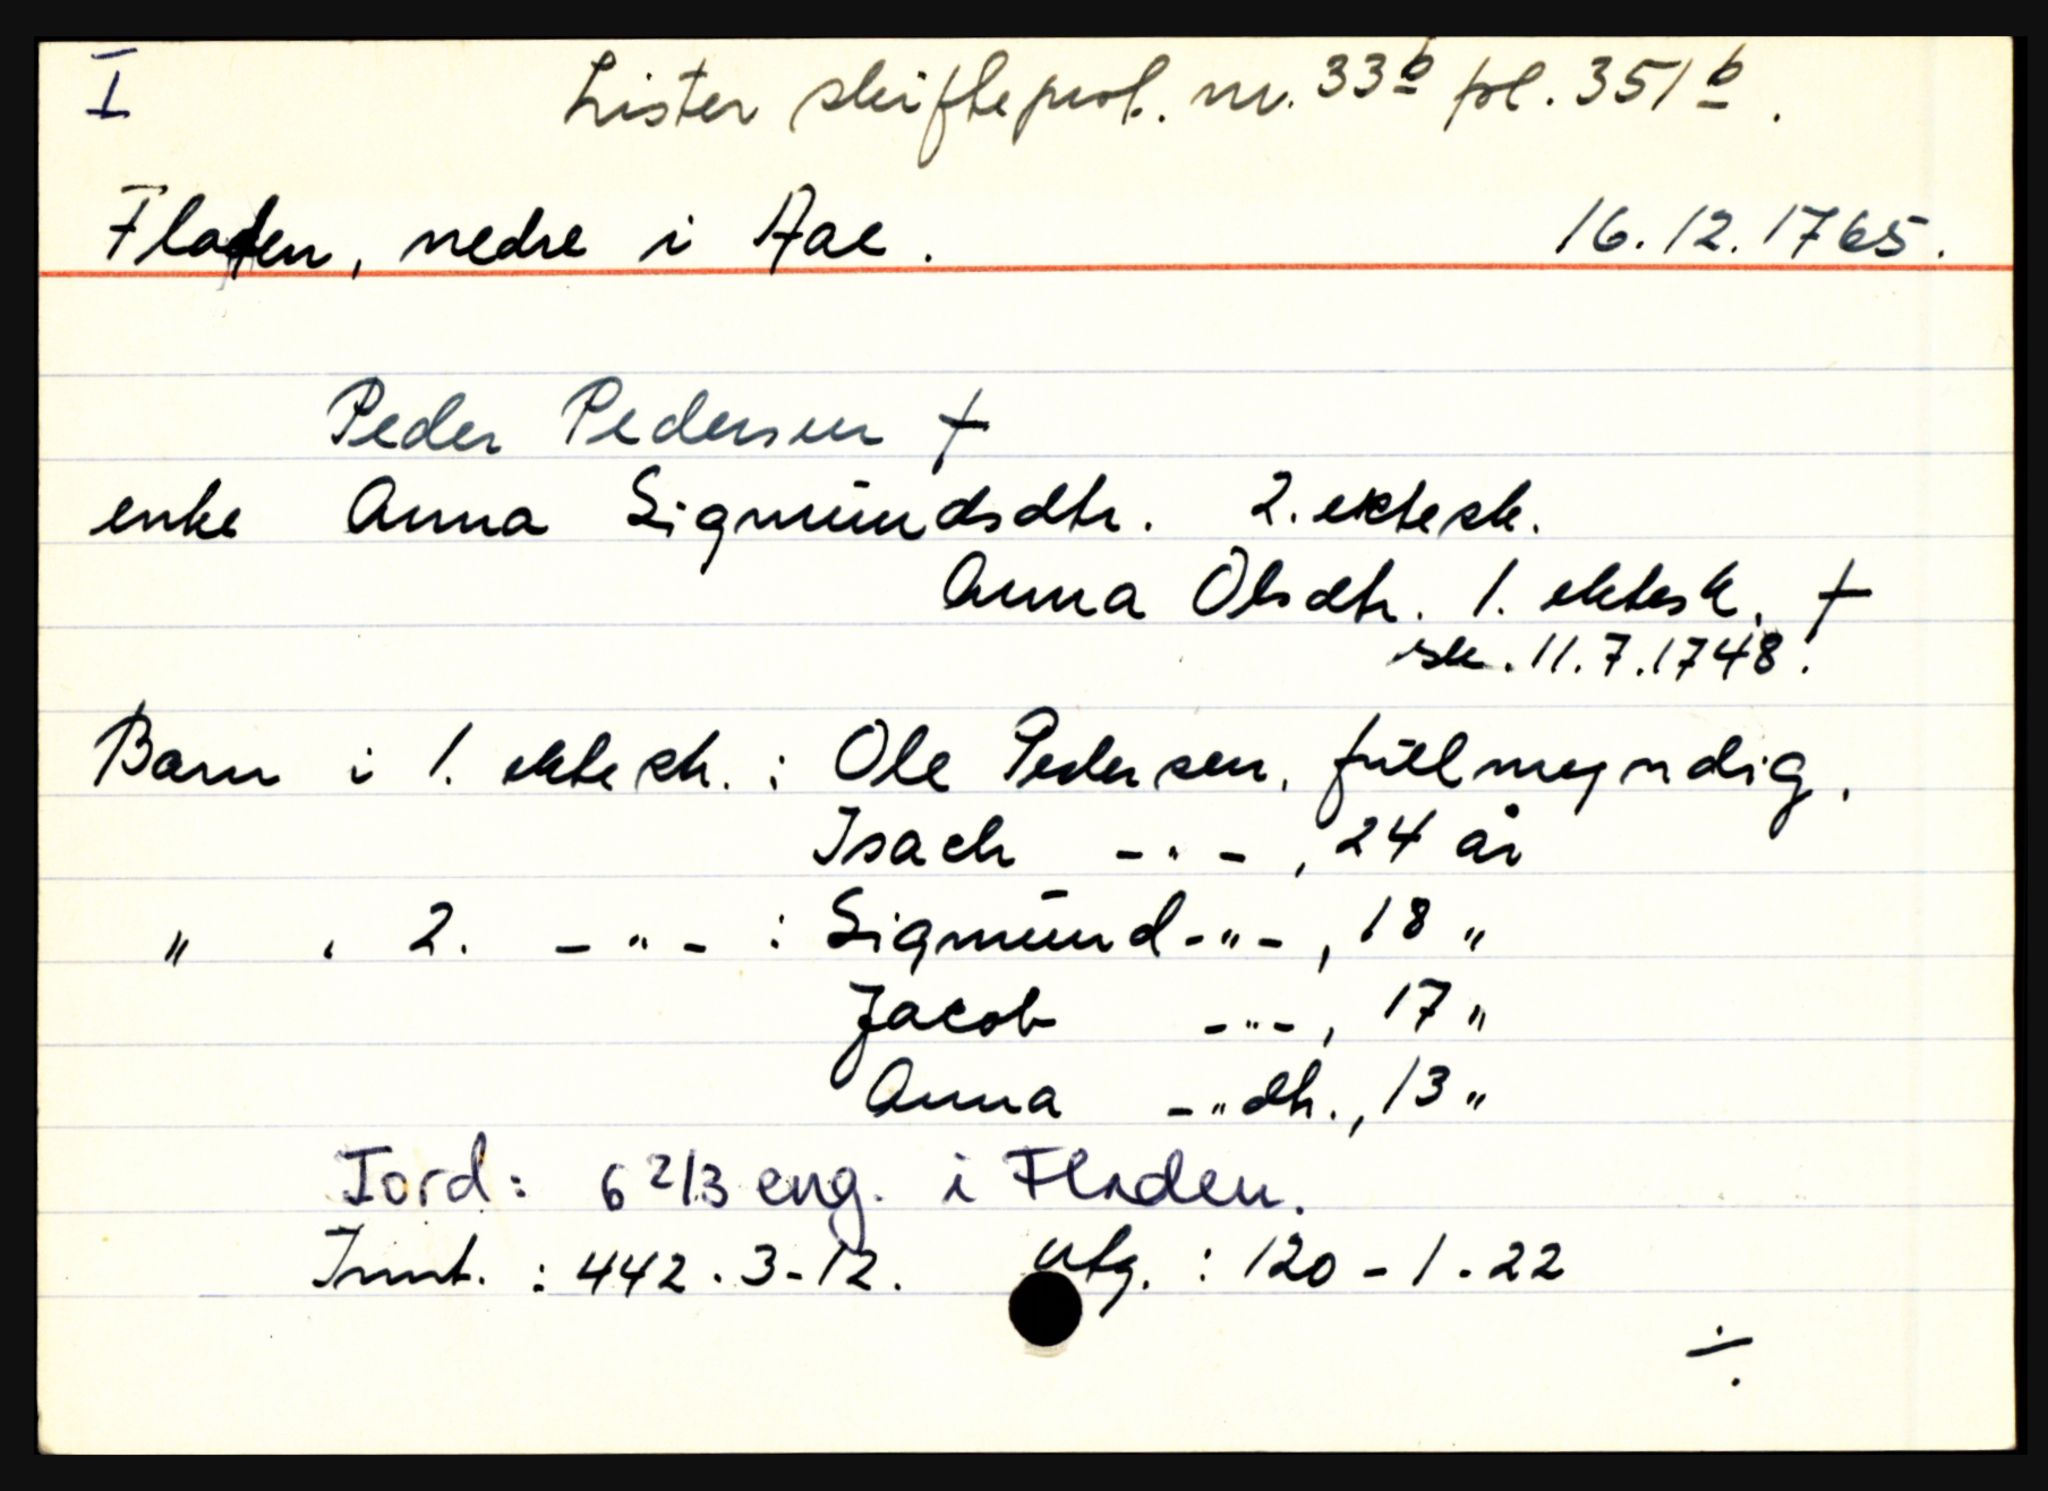 I Lister skifteprot. nr. 33b fol. 351b.
Fladen, nedre i Aae. 16.12.1765.
Peder Pedersen †
enke Anna Sigmundsdtr. 2. ektesk.
Anna Olsdtr. 1. ektesk. †
sk. 11.7.1748.
Barn i 1. ektesk. : Ole Pedersen, fullmyndig,
Isach -"- , 24 år
" , 2. -"- : Sigmund -"- , 18 "
Jacob -"- , 17 "
Anna -"dtr. , 13 "
Jord: 6 2/3 eng. i Fladen.
Innt. : 442.3-12. utg. : 120-1-22
./.